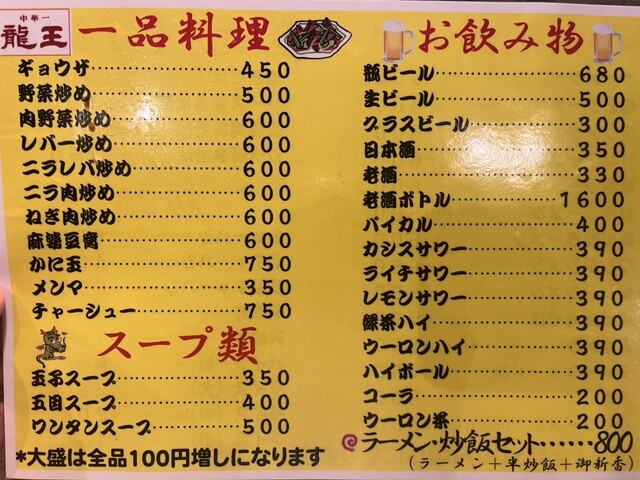 中華一
龍王
一品料理
ギョウザ‥‥‥‥‥‥450
野菜炒め‥‥‥‥‥‥500
肉野菜炒め‥‥‥‥‥600
レバー炒め‥‥‥‥‥600
ニラレバ炒め‥‥‥‥600
ニラ肉炒め‥‥‥‥‥600
ねぎ肉炒め‥‥‥‥‥600
麻婆豆腐‥‥‥‥‥‥600
かに玉‥‥‥‥‥‥‥750
メンマ‥‥‥‥‥‥‥350
チャーシュー‥‥‥‥750
スープ類
玉子スープ‥‥‥‥‥350
五目スープ‥‥‥‥‥400
ワンタンスープ‥‥‥500
*大盛は全品100円増しになります
お飲み物
瓶ビール‥‥‥‥‥‥680
生ビール‥‥‥‥‥‥500
グラスビール‥‥‥‥300
日本酒‥‥‥‥‥‥‥350
老酒‥‥‥‥‥‥‥‥330
老酒ボトル‥‥‥‥‥1600
パイカル‥‥‥‥‥‥400
カシスサワー‥‥‥‥390
ライチサワー‥‥‥‥390
レモンサワー‥‥‥‥390
緑茶ハイ‥‥‥‥‥‥390
ウーロンハイ‥‥‥‥390
ハイボール‥‥‥‥‥390
コーラ‥‥‥‥‥‥‥200
ウーロン茶‥‥‥‥‥200
ラーメン・炒飯セット‥‥‥800
(ラーメン+半炒飯+御新香)